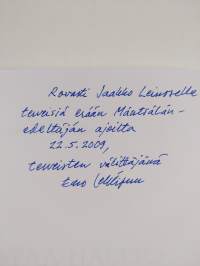 Rovasti Jaakko Leinoselle
terveisiä erään Mäntsälän-
edeltäjän ajoilta
22.5.2009,
terveisten välittäjänä
Eero